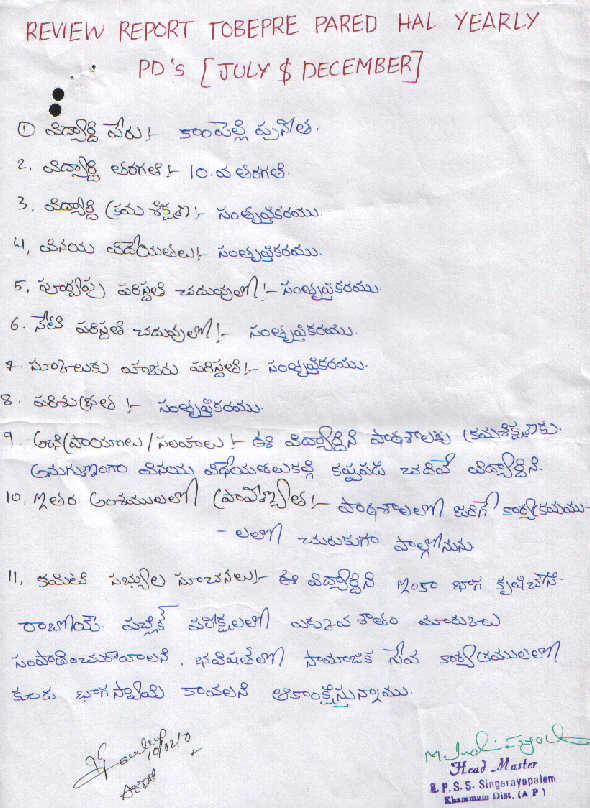 REVIEW REPORT TOBEPRE PARED HAL YEARLY
PD'S [JULY $ DECEMBER]
① విద్యార్థి పేరు :- కాంపెల్లి పునీత.
2. విద్యార్థి తరగతి :- 10. వ తరగతి.
3. విద్యార్థి క్రమశిక్షణ :- సంతృప్తికరము.
4. వినయ విధేయతలు :- సంతృప్తికరము.
5. పూర్వపు పరిస్థితి చదువులో :- సంతృప్తికరము.
6. నేటి పరిస్థితి చదువులో :- సంతృప్తికరము.
7. స్కూలుకు హాజరు పరిస్థితి :- సంతృప్తికరము.
8. పరిశుభ్రత :- సంతృప్తికరము.
9. అభిప్రాయాలు / సలహాలు :- ఈ విద్యార్థిని పాఠశాలకు క్రమశిక్షణకు
అనుగుణంగా వినయ విధేయతలుకల్గి కష్టపడి చదివే విద్యార్థిని.
10. ఇతర అంశములలో ప్రావీణ్యత :- పాఠశాలలో జరిగే కార్యక్రమము
- లలో చురుకుగా పాల్గొనును
11. కమిటి సభ్యుల సూచనలు :- ఈ విద్యార్థిని ఇంకా బాగ కృషిచేసి
రాబోయే పబ్లిక్ పరీక్షలలో ఎక్కువ శాతం మార్కులు
సంపాదించుకోవాలని, భవిష్యత్‌లో సామాజిక సేవ కార్యక్రమములలో
కూడా భాగస్వామి కావాలని ఆకాంక్షిస్తున్నాము.
10/02/10
Head Master
R. P. S. S. Singarayapalem
Khammam Dist. (A P)